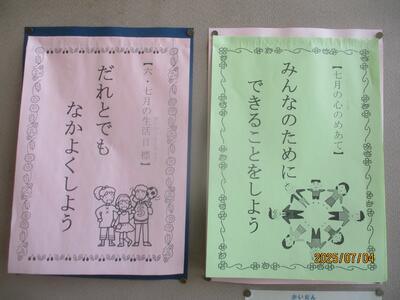 【六・七月の生活目標】
だれとでも
なかよくしよう
【七月の心のめあて】
みんなのために
できることをしよう
2025/07/04
かいだん